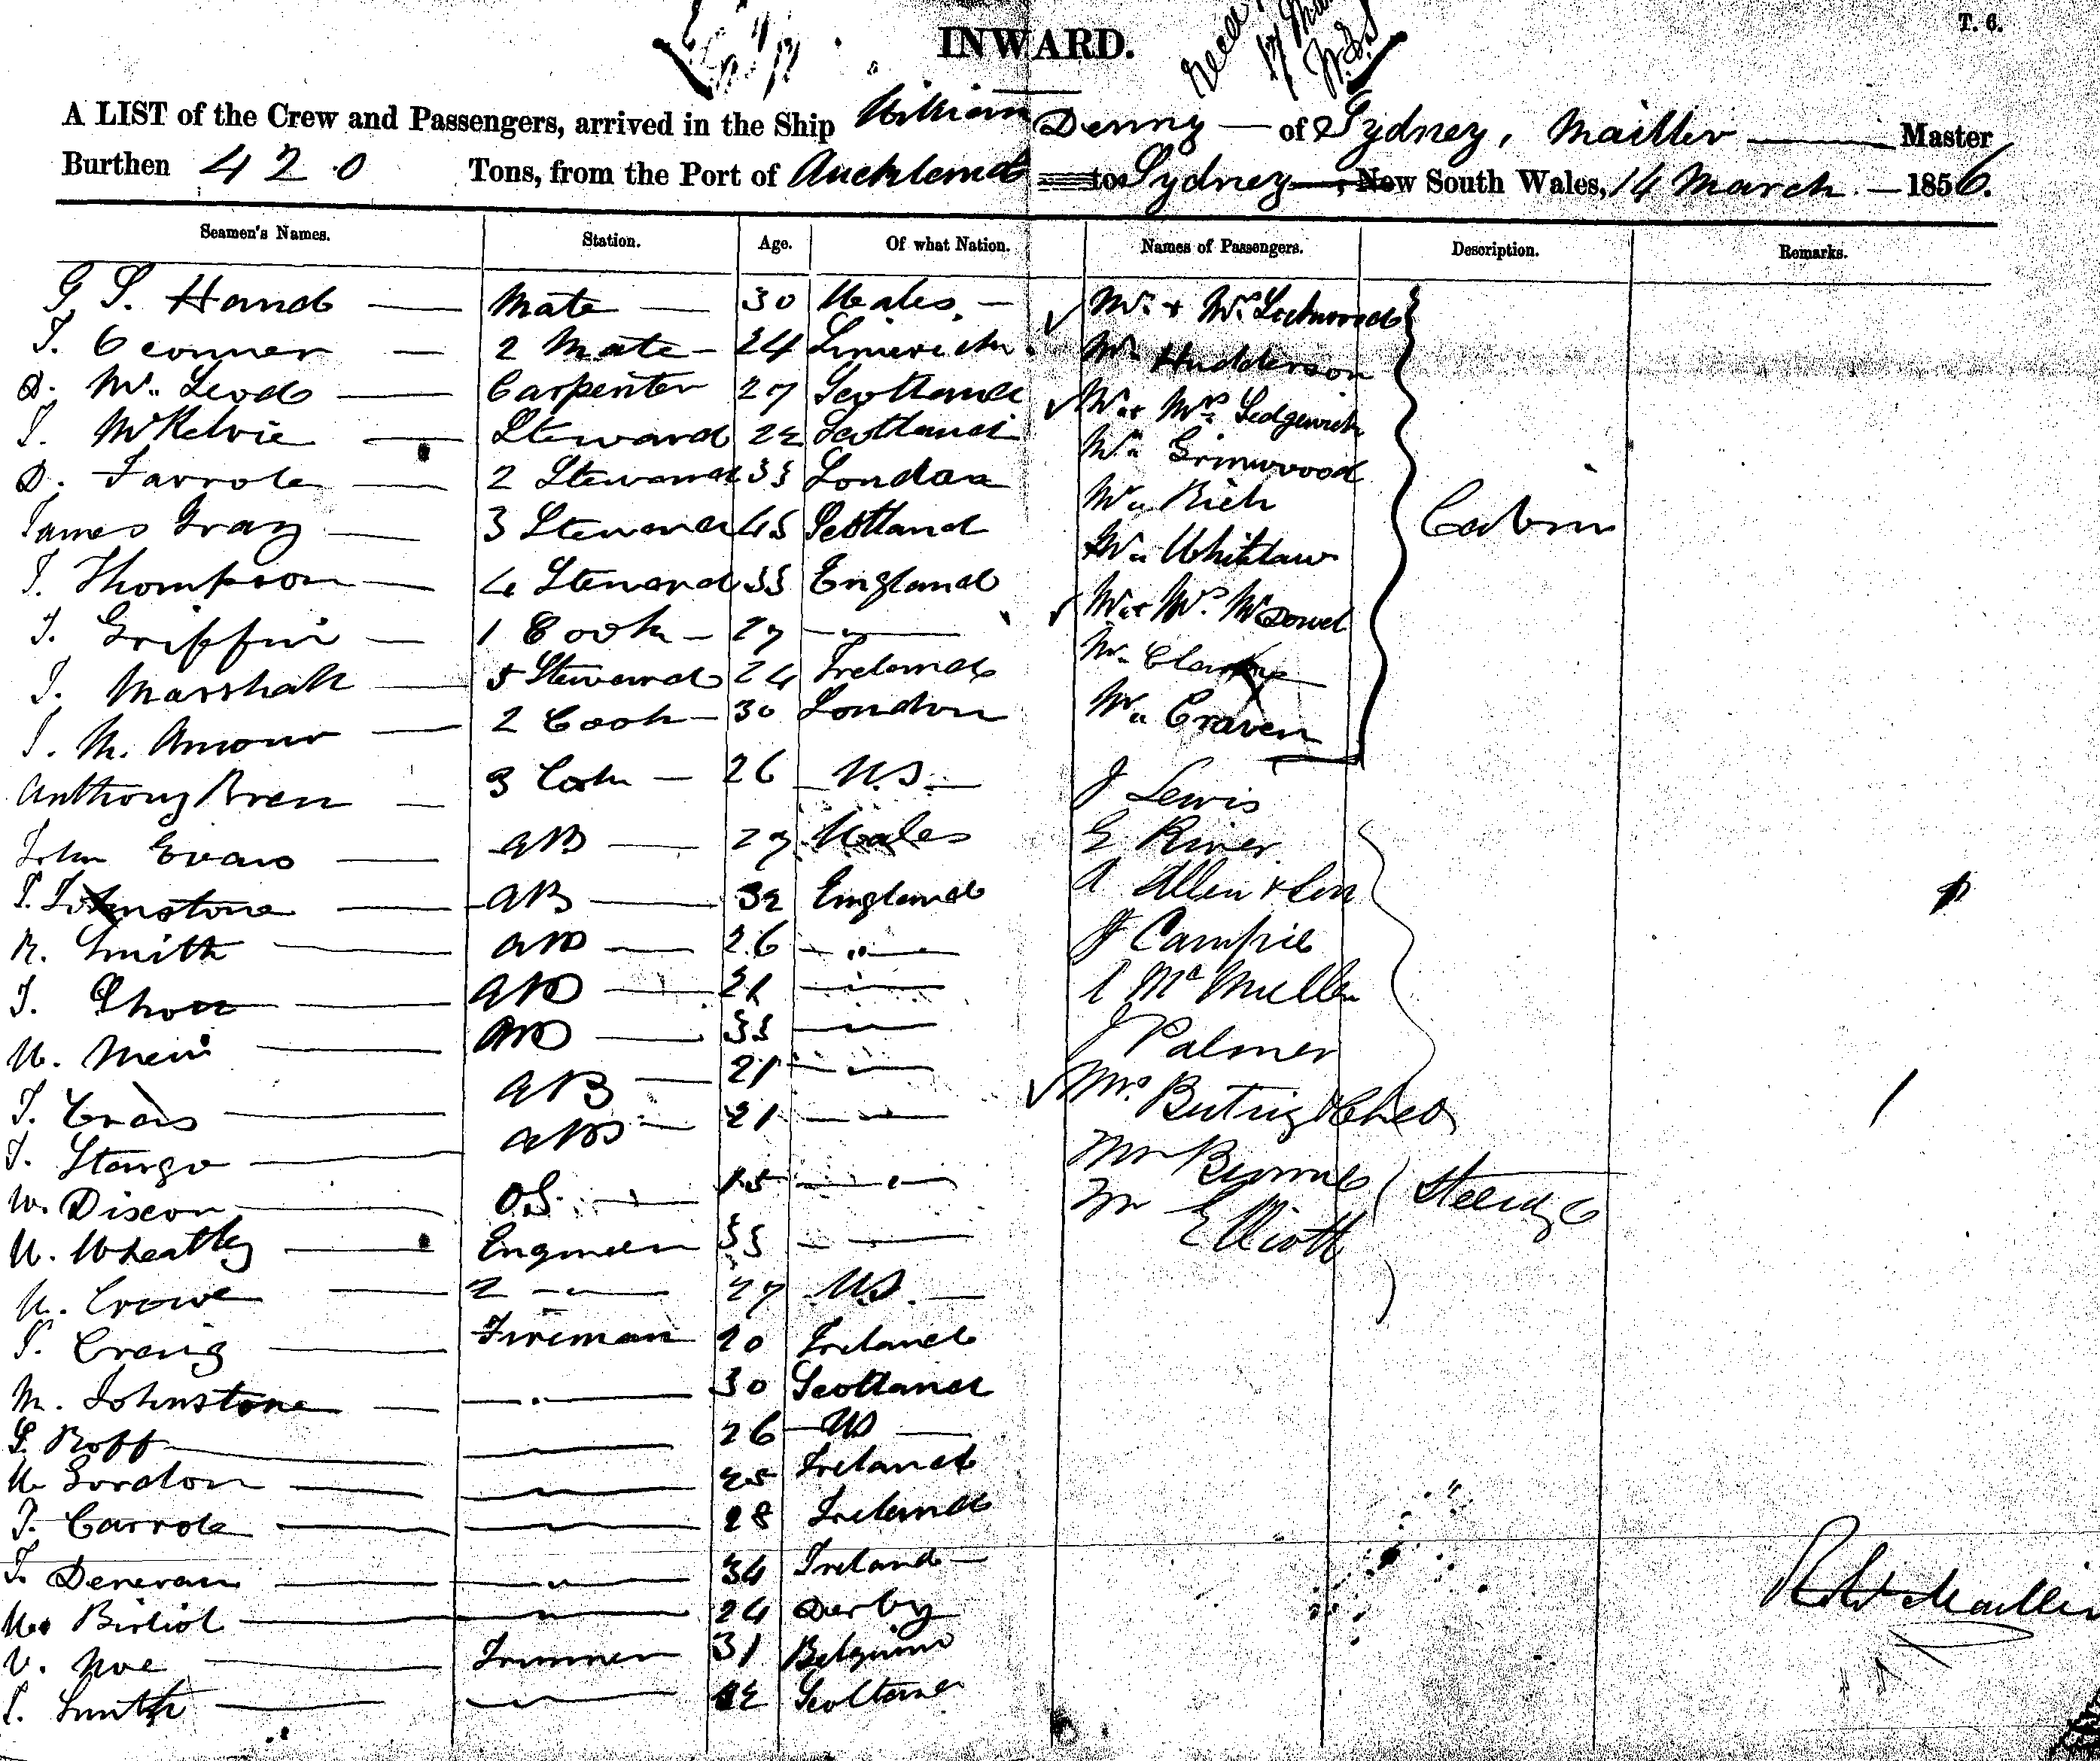 T. 6.
INWARD.
A LIST of the Crew and Passengers, arrived in the Ship William Denny — of Sydney, Mailler — Master
Burthen 420 Tons, from the Port of Auckland to Sydney, New South Wales, 14 March — 1856.
Seamen's Names. Station. Age. Of what Nation. Names of Passengers. Description. Remarks.
G S. Hand — Mate — 30 Wales — Mr. + Mrs
T. Oconner — 2 Mate — 24 Limerick Mr. Hudderson
D. Mc Leod — Carpenter 27 Scotland Mr + Mrs Sedgewick
J. McKelvie — Steward 22 Scotland Mr. Grimwood
D. Farrole — 2 Steward 35 London Mr. Rich
James Gray — 3 Steward 45 Scotland Mr. Whitlaw Cabin
J. Thompson — 4 Steward 35 England Mr + Mrs. McDowel
J. Griffin — 1 Cook — 27 — " — Mr. Clark
J. Marshall — 5 Steward 24 Ireland Mr. Craven
J. M. Amour — 2 Cook — 30 London
Anthony — 3 Cook — 26 U.S. — J Lewis
John Evans — AB — 27 Wales E River
T. Johnstone — AB — 32 England A Allen + Son
R. Smith — AB — 26 — " — J
T. — AB — 21 — " — McMullen
W. — AB — 35 — " — J Palmer
T. Evans — AB — 21 — " — Mrs.
T. — AB — 21 — " — Mr
W. Discon — O.S. — 15 — " — Mr Elliott Steerage
W. Wheatley — Engineer 35 — " —
W. Crowe — 2 — " — 27 U.S. —
T. Craig — Fireman 20 Ireland
M. Johnstone — — " — 30 Scotland
S. Roff — — " — 26 — US —
W Gordon — — " — 25 Ireland
T. Carrole — — " — 28 Ireland
T. Denevan — — " — 34 Ireland —
— " — 24 Derby
V. Noe — Trimmer 31 Belgium
S. Smith — — " — 22 Scotland
Robt Mailler